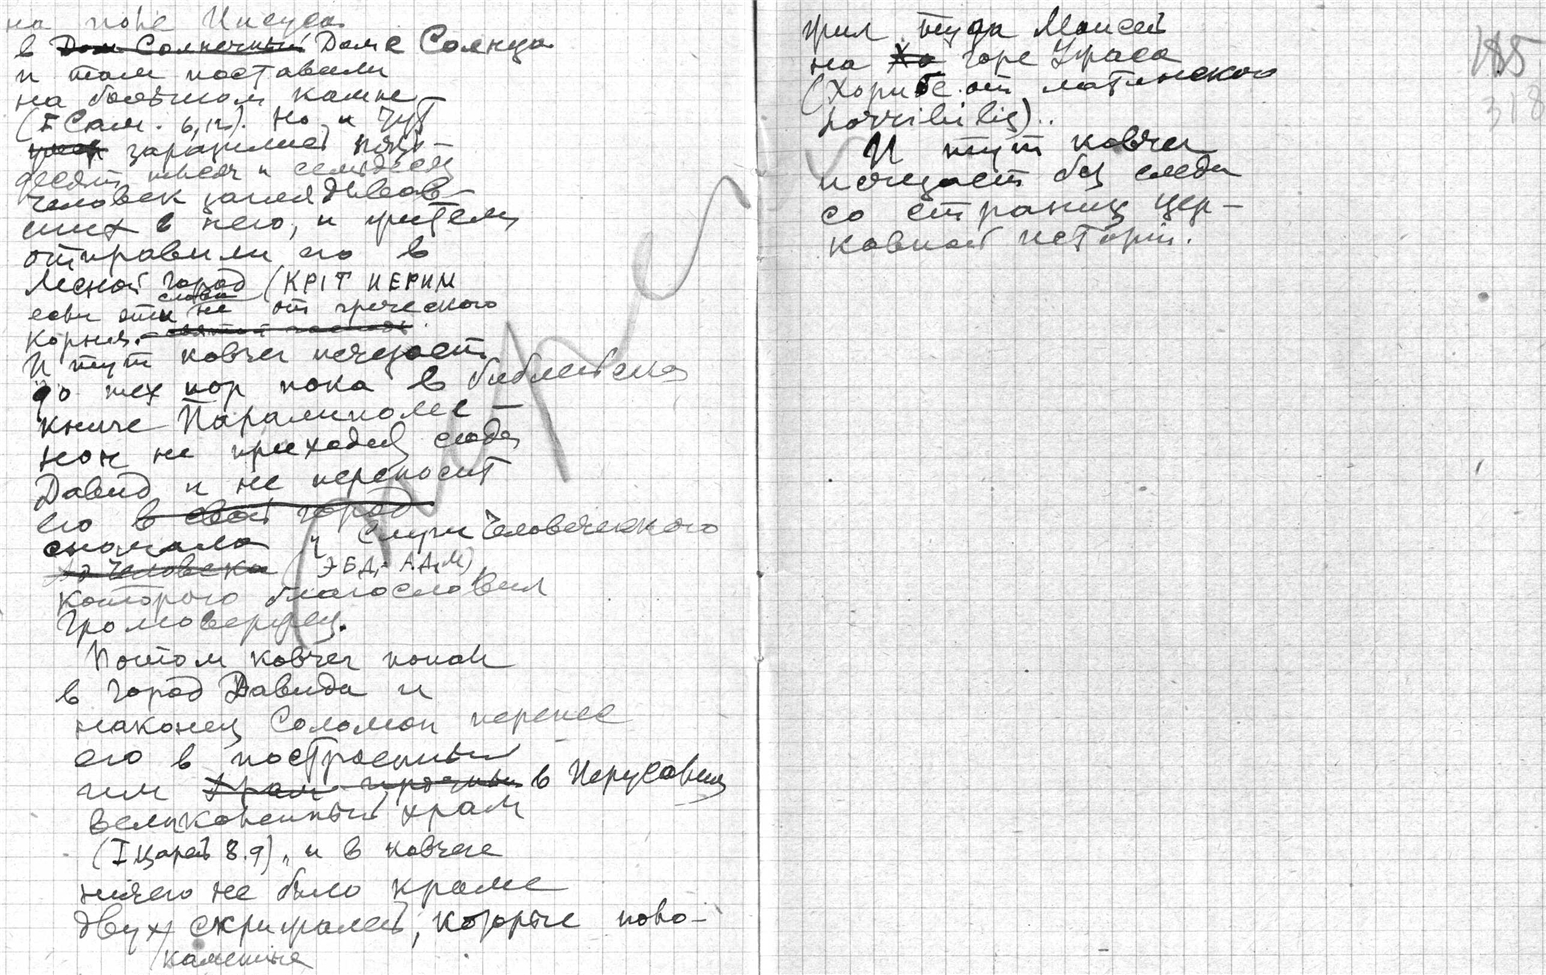 на поле Иисуса
в Дом Солнечный Доме Солнца
и там поставили
на большом камне
(I Сам. 6,12). Но и тут
заразились пять-
десят тысяч и семьдесят
человек заглядывав-
ших в него, и жители
отправили его в
Лесной город (КРІТ ИЕРИМ
если эти слова не от греческого
корня.
И тут ковчег исчезает
до тех пор пока в библейской
книге Паралипоме-
нон не приходит сюда
Давид и не переносит
его в свой город
сначала к Слуги Человеческого
человека (ЭБД-АДМ),
которого благословил
Громовержец.
Потом ковчег попал
в город Давида и
наконец Соломон перенес
его в построенный
им храм в Иерусалим
великолепный храм
(I Царей 8.9), и в ковчеге
ничего не было кроме
двух скрижалей, которые поло-
каменные
жил туда Моисей
на Хо горе Ужаса
(Хорибе от латинского
horribilis)..
И тут ковчег
исчезает без следа
со страниц цер-
ковной истории.
185
318